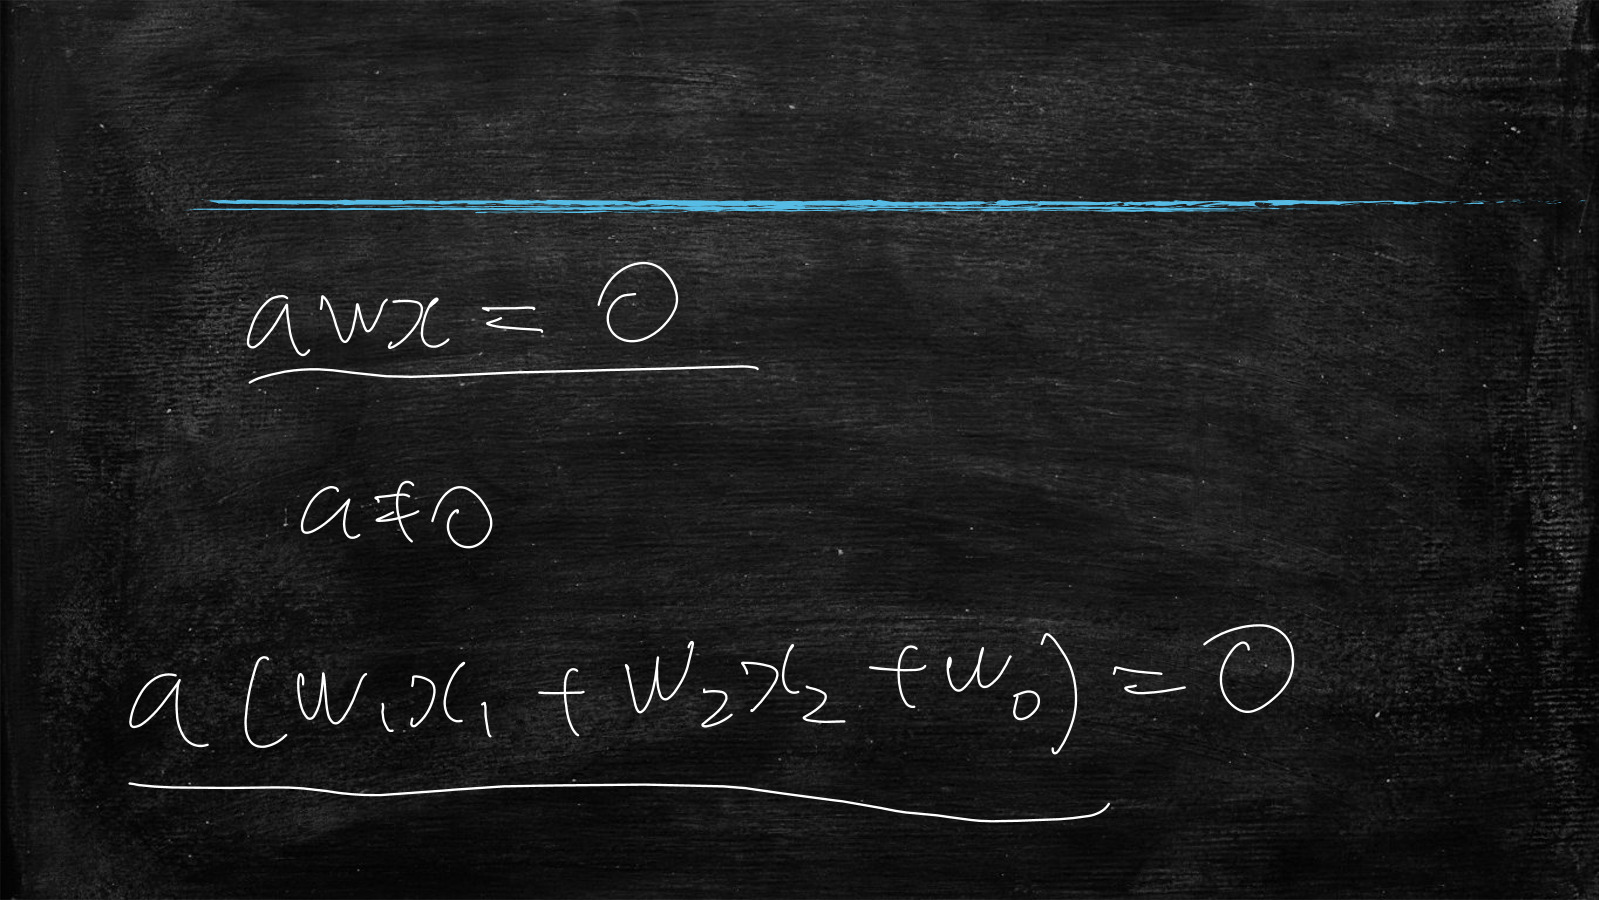 awx = 0
a≠0
a(w₁x₁ + w₂x₂ + w₀) = 0